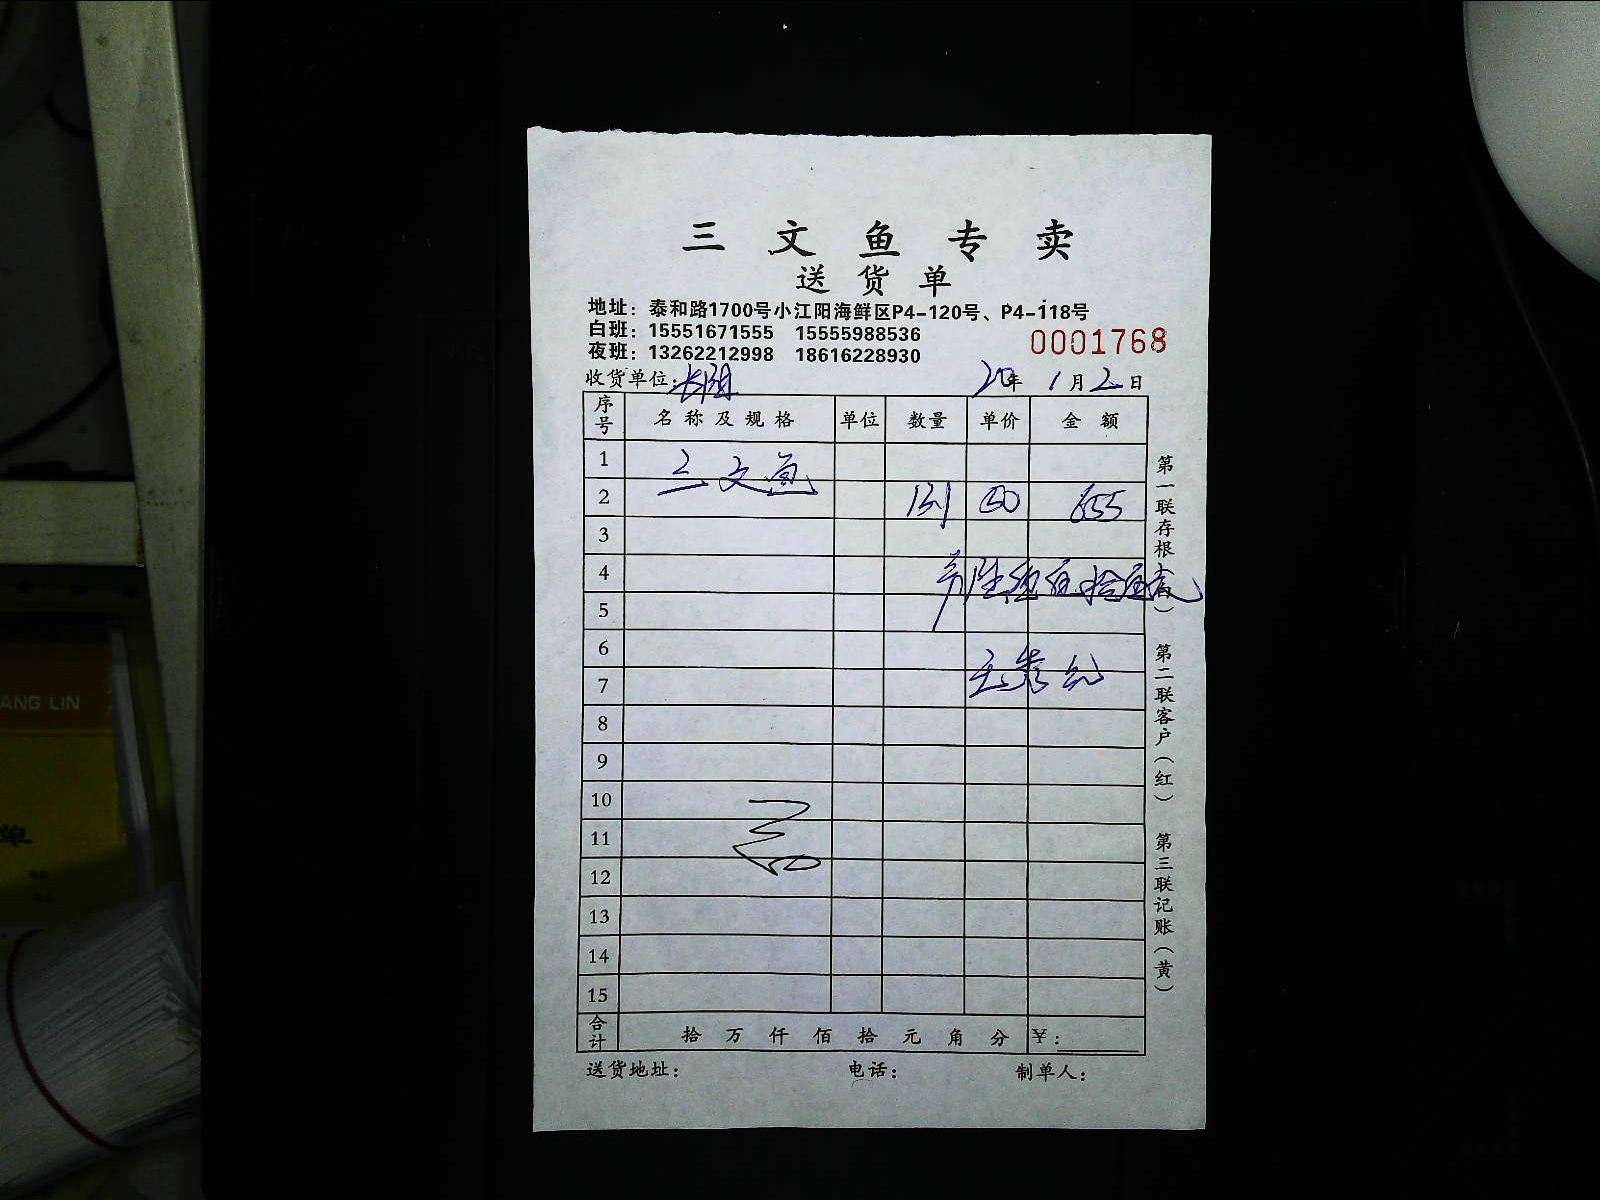 三文鱼专卖
送货单
地址：泰和路1700号小江阳海鲜区P4-120号、P4-118号
白班：15551671555 15555988536
夜班：13262212998 18616228930
0001768
收货单位： 20年1月2日
序号 名称及规格 单位 数量 单价 金额
1 三文鱼
2 131 50 655
3
4
5
6
7
8
9
10
11
12
13
14
15
合计 拾万仟佰拾元角分 ￥：
送货地址： 电话： 制单人：
第一联存根（白） 第二联客户（红） 第三联记账（黄）
ANG LIN
单